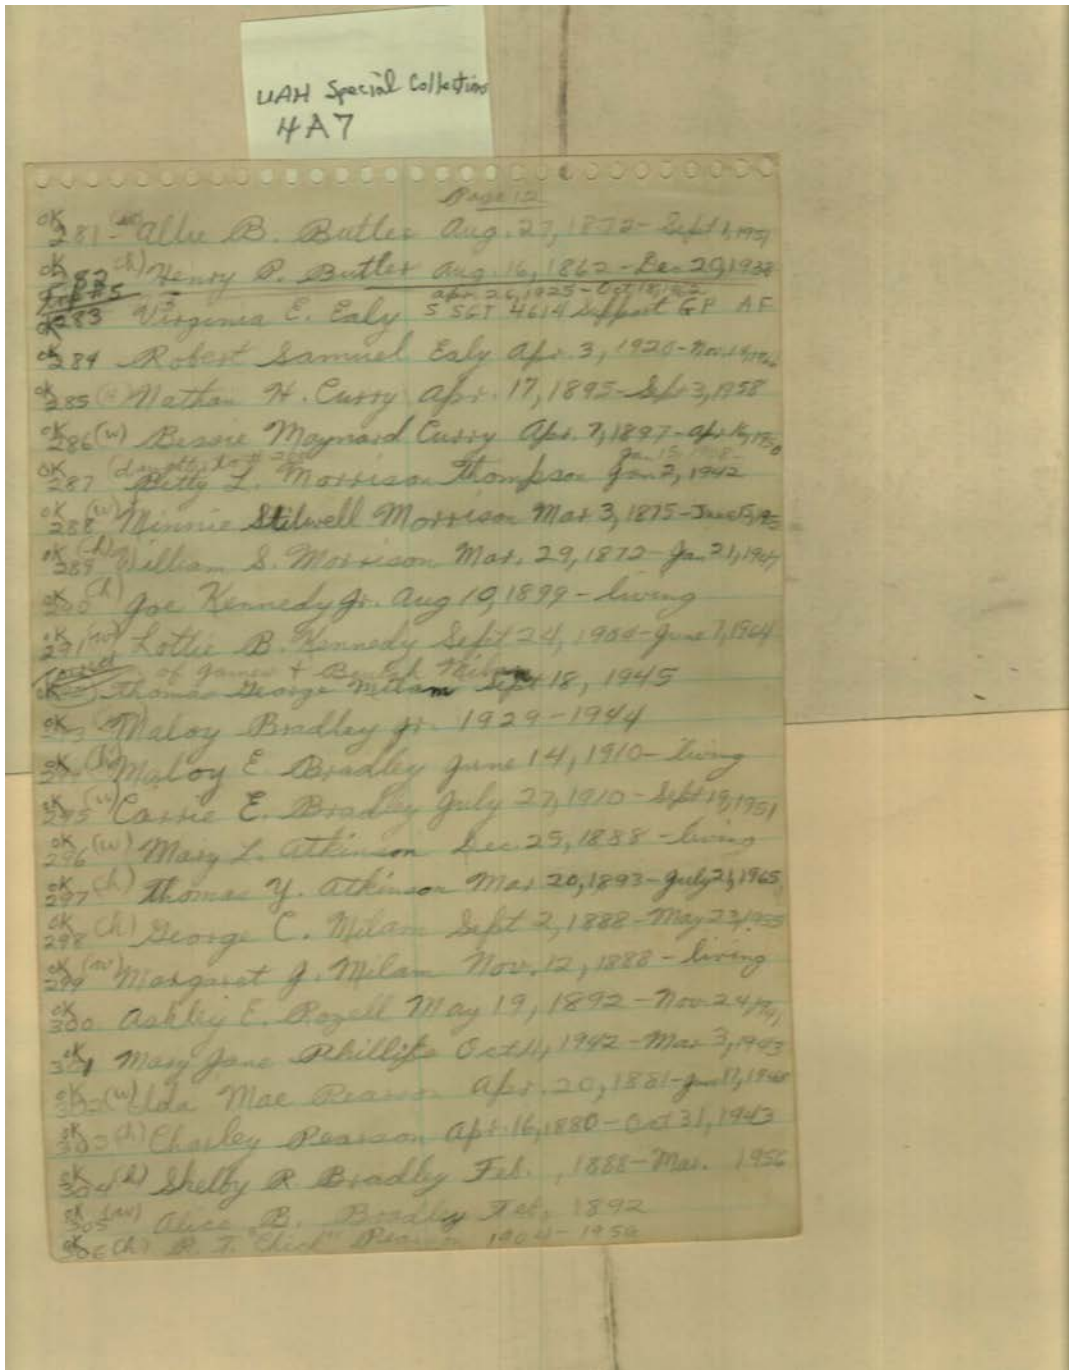 UAH Special Collections
4A7
Page 12
OK 281 - (w) Allie B. Butler Aug. 27, 1872 - Sept 1, 1951
OK 282 (h) Henry P. Butler Aug. 16, 1862 - Dec 20, 1938
Apr. 26, 1925 - Oct 18,
283 Virginia E. Ealy S SGT 4614 Support GP AF
OK 284 Robert Samuel Ealy Apr. 3, 1920 - Nov.
OK 285 Nathan H. Curry Apr. 17, 1895 - Sept 3, 1958
OK 286 (w) Bessie Maynard Curry Apr. 7, 1897 - Apr 16, 1950
(daughter to # Jan 15, 1908 -
OK 287 Betty L. Morrison Thompson Jan 2, 1942
OK 288 (w) Minnie Stilwell Morrison Mar 3, 1875 - June
OK 289 (h) William S. Morrison Mar. 29, 1872 - Jan. 21, 1947
OK 300 (h) Joe Kennedy Jr. Aug 10, 1899 - living
OK 291 (w) Lottie B. Kennedy Sept 24, 1900 - June 7, 1964
of James + Milam
OK Thomas George Milam Sept 18, 1945
OK Maloy Bradley Jr. 1929 - 1944
OK (h) Maloy E Bradley June 14, 1910 - living
OK 295 (w) Carrie E. Bradley July 27, 1910 - Sept 19, 1951
OK 296 (w) Mary L. Atkinson Dec. 25, 1888 - living
OK 297 (h) Thomas Y. Atkinson Mar 20, 1893 - July 21, 1965
OK 298 (h) George C. Milam Sept 2, 1888 - May 23, 1955
OK 299 (w) Margaret J. Milam Nov. 12, 1888 - living
OK 300 Ashley E. Rozell May 19, 1892 - Nov. 24, 1941
OK 301 Mary Jane Phillips Oct 11, 1942 - Mar 3, 1943
OK 302 (w) Ida Mae Pearson Apr. 20, 1881 - Jan 17,
OK 303 (h) Charley Pearson Apr. 16, 1880 - Oct 31, 1943
OK 304 (h) Shelby R Bradley Feb. , 1888 - Mar. 1956
OK 305 (w) Alice B. Bradley Feb, 1892
OK 306 (h) R. T. "Chick" Pearson 1904 - 1950